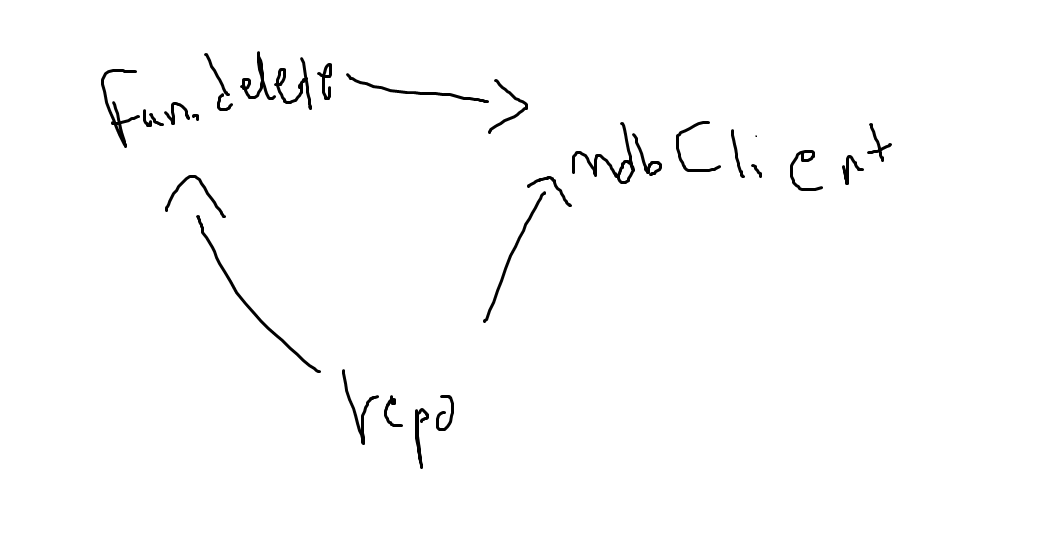 Fun.delete
mdbClient
repo